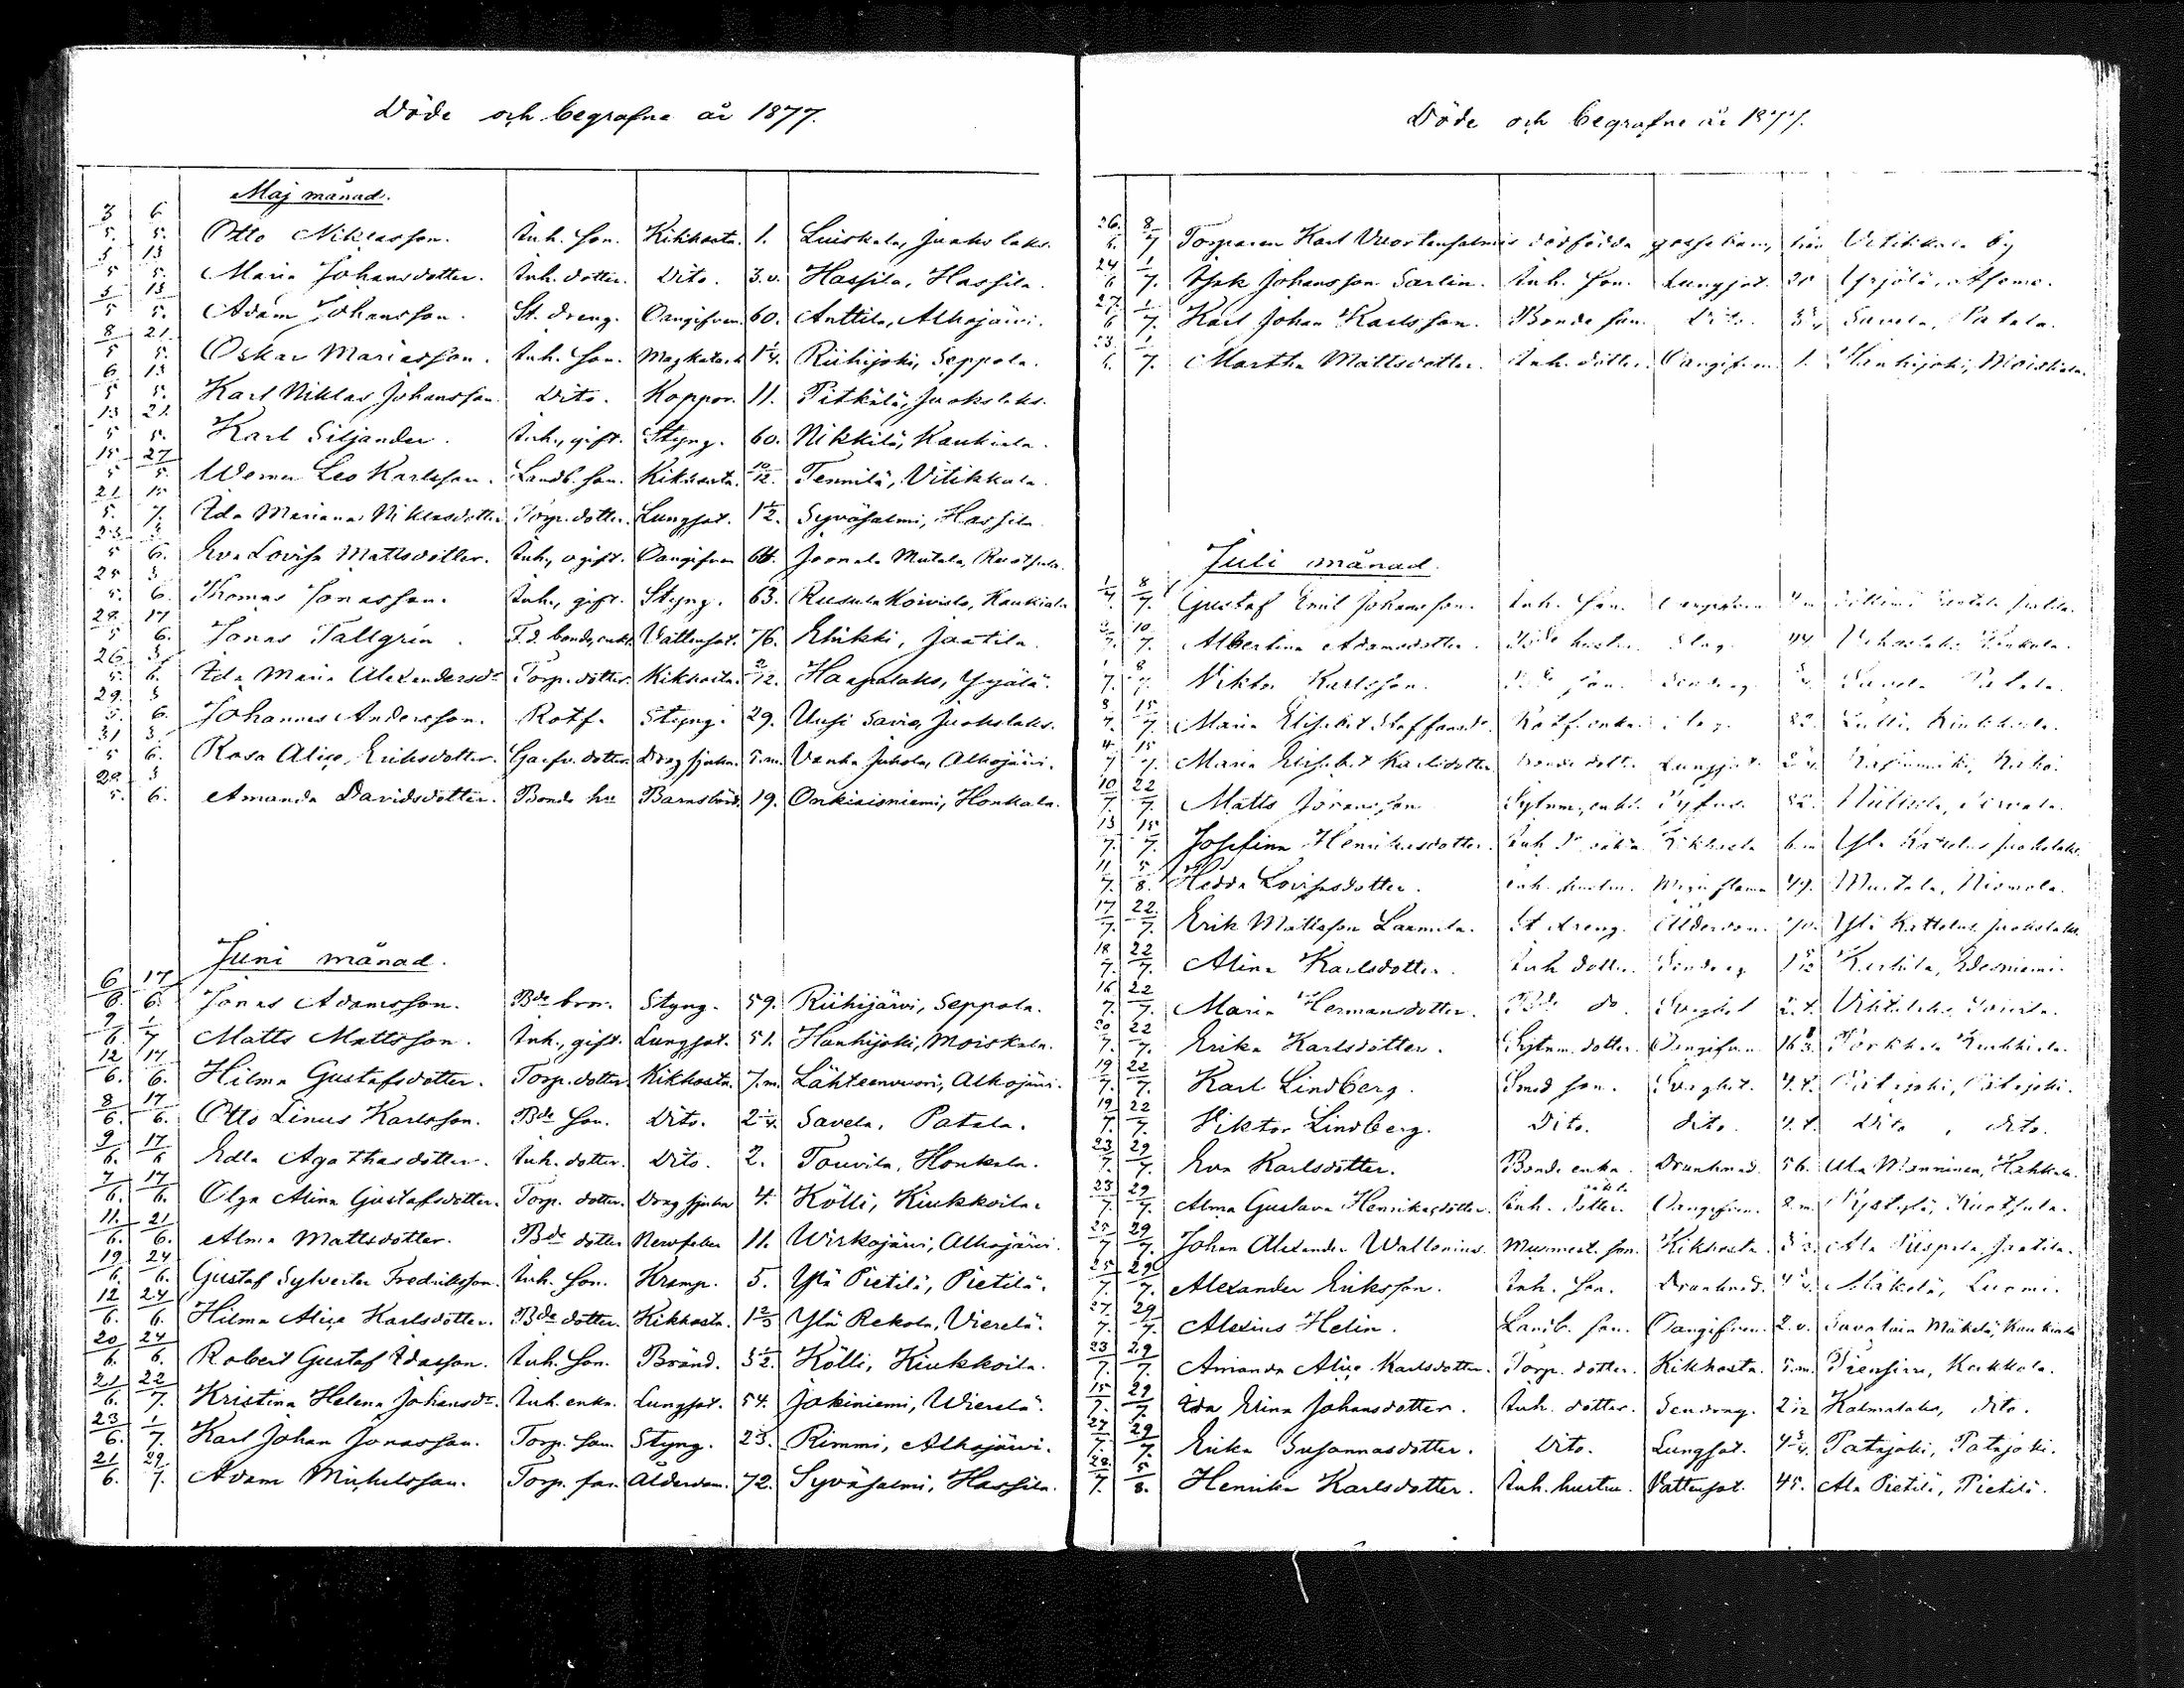 Döde och begrafne år 1877.
Maj månad.
3/5. 6/5. Otto Niklasson. Inh. son. Kikhosta. 1. Luiskala, Juokslaks.
5/5 13/5. Maria Johansdotter. Inh. dotter. Dito. 3.v. Hassila, Hassila.
5/5 13/5. Adam Johansson. St. dreng. Oangifven. 60. Anttila, Alhojärvi.
8/5 21/5. Oskar Mariasson. Inh. son. Magkatarh 1 1/4. Riihijoki, Seppola.
6/5 13/5. Karl Niklas Johansson. Dito. Koppor. 11. Pitkälä, Juokslaks.
13/5 21/5. Karl Siljander. Inh., gift. Styng. 60. Nikkilä, Kaukiala.
15/5 27/5. Werner Leo Karlsson. Landb. son. Kikhosta. 10/12. Tennilä, Vitikkala.
21/5. 15/7. Ida Mariana Niklasdotter Torp. dotter. Lungsot. 1 1/2. Syväsalmi, Hassila.
23/5 3/6. Eva Lovisa Mattsdotter. Inh., ogift. Oangifven 64. Joonala Mutala, Ruotsula.
25/5. 3/6. Thomas Jonasson. Inh., gift. Styng. 63. Rusula Koivisto, Kaukiala
29/5 17/6. Jonas Tallgrén. F.d. bonde, enkl. Vattensot. 76. Erkki, Jaatila.
26/5. 3/6. Ida Maria Alexandersdr Torp. dotter. Kikhosta. 2/12. Haapalaks, Yrjälä.
29/5. 3/6. Johannes Andersson. Rotf. Styng. 29. Uusi Savio, Juokslaks.
31/5 3/6. Rosa Alice, Eriksdotter. Garfv. dotter. Dragsjuka. 5.m. Vanha Juhola, Alhojärvi.
29/5. 3/6. Amanda Davidsdotter. Bonde hru Barnsbörd. 19. Onkiaisniemi, Honkala.
Juni månad.
6/6. 17/6. Jonas Adamsson. Bde bror. Styng. 59. Riihijärvi, Seppola.
9/6. 1/7 Matts Mattsson. Inh., gift. Lungsot. 51. Hanhijoki, Moiskala.
12/6. 17/6. Hilma Gustafsdotter. Torp. dotter. Kikhosta. 7.m. Lähteenvuori, Alhojärvi.
8/6. 17/6. Otto Linus Karlsson. Bde son. Dito. 2 1/4. Savela, Patala.
9/6. 17/6 Edla Agathasdotter. Inh. dotter. Dito. 2. Touvila, Honkala.
7/6. 17/6. Olga Alina Gustafsdotter. Torp. dotter. Dragsjuka 4. Kölli, Kiukkoila.
11./6. 21/6. Alma Mattsdotter. Bde dotter Nervfeber 11. Wirkojärvi, Alhojärvi.
19/6. 24/6. Gustaf Sylvester Fredriksson. Inh. son. Kramp. 5. Ylä Pietilä, Pietilä.
12/6. 24/6. Hilma Alice Karlsdotter. Bde dotter. Kikhosta. 1 2/3 Ylä Rekola, Vierelä.
20/6. 24/6. Robert Gustaf Idasson. Inh. son. Bränd. 3 1/2. Kölli, Kiukkoila.
21/6. 22/7. Kristina Helena Johansdr. Inh. enka. Lungsot. 54. Jokiniemi, Wierelä.
23/6. 1/7. Karl Johan Jonasson. Torp. son. Styng. 23. Rimmi, Alhojärvi.
21/6. 29/7. Adam Mickelsson. Torp. far. Ålderdom. 72. Syväsalmi, Hassila.
Döde och begrafne år 1877.
26./6. 8/7 Torparen Karl Vuorlensalmis dödfödda gossebarn, från Vitikkala by
24/6 1/7. Isak Johansson Sarlin. Inh. son. Lungsot. 20
27./6 1/7. Karl Johan Karlsson. Bonde son. Dito. Savela, Patala.
23./6. 1/7. Martha Mattsdotter. Inh. dotter. Oangifven. 1. Hanhijoki, Moiskala.
Juli månad.
1/7. 8/7. Gustaf Emil Johansson. Inh. son. Oangifven
10/7. Albertina Adamsdotter. Bde hustru Slag. 44
1/7. 8/7. Viktor Karlsson. Bde son. Savela Patala.
8/7. 15/7. Maria Elisabet Staffansdr. Rotf. enka. Slag.
4/7 15/7. Maria Elisabet Karlsdotter. Bonde dotter Lungsot
10/7. 22/7. Matts Göransson Sytnm., enkl. Tyfus.
13/7. 15/7. Josefina Henrikasdotter. Inh. Kikhosta 6.m Ylä Kattelus Juokslaks.
11/7. 5/8. Hedda Lovisasdotter. Inh. hustru. 49. Mustala, Niemola.
17/7. 22/7. Erik Mattsson Laamila. St dreng. Ålderdom. 70. Ylä Kattelus Juokslaks.
18/7. 22/7. Alina Karlsdotter. Inh dotter.
16/7. 22/7. Maria Hermansdotter. Bde do Svaghet
20/7. 22/7. Erika Karlsdotter. Sytnm. dotter. Oangifven
19/7. 22/7. Karl Lindberg. Smed son. Svaghet. 4.t. Patajoki, Patajoki.
19/7. 22/7. Viktor Lindberg. Dito. dito. 4.t. Dito, dito.
23/7. 29/7. Eva Karlsdotter. Bonde enka. Drunknad. 56. Ala Manninen, Hahkala.
23/7. 29/7. Alma Gustava Henrikasdotter. Inh. dotter. Oangifven. 2.m.
25/7 29/7. Johan Alexander Wallenius. Murmest. son. Kikhosta. Ala Piispala, Jaatila.
25/7. 29/7. Alexander Eriksson. Inh. son. Drunknad. Mäkelä, Luomi.
27./7. 29/7. Alexius Helin. Landb. son. Oangifven. 2.v. Savolain Mäkelä, Kaukiala
23/7. 29/7. Amanda Alice Karlsdotter. Torp. dotter. Kikhosta. 5.m. Kukkola.
15/7. 29/7. Ida Elina Johansdotter. Inh. dotter. Kalmalaks, dito.
27/7. 29/7. Erika Susannasdotter. Dito. Lungsot. 4 3/4. Patajoki, Patajoki.
28./7. 5/8. Henrika Karlsdotter. Inh. hustru. Vattensot. 45. Ala Pietilä, Pietilä.